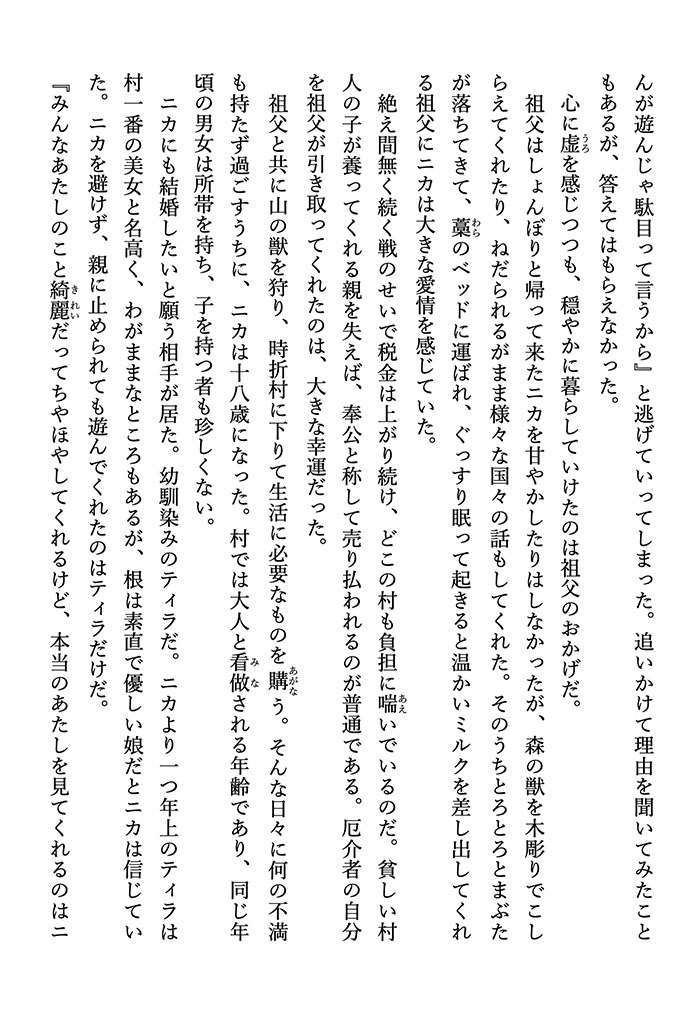 んが遊んじゃ駄目って言うから』と逃げていってしまった。追いかけて理由を聞いてみたこと
もあるが、答えてはもらえなかった。
心に虚うろを感じつつも、穏やかに暮らしていけたのは祖父のおかげだ。
祖父はしょんぼりと帰って来たニカを甘やかしたりはしなかったが、森の獣を木彫りでこし
らえてくれたり、ねだられるがまま様々な国々の話もしてくれた。そのうちとろとろとまぶた
が落ちてきて、藁わらのベッドに運ばれ、ぐっすり眠って起きると温かいミルクを差し出してくれ
る祖父にニカは大きな愛情を感じていた。
絶え間無く続く戦のせいで税金は上がり続け、どこの村も負担に喘あえいでいるのだ。貧しい村
人の子が養ってくれる親を失えば、奉公と称して売り払われるのが普通である。厄介者の自分
を祖父が引き取ってくれたのは、大きな幸運だった。
祖父と共に山の獣を狩り、時折村に下りて生活に必要なものを購あがなう。そんな日々に何の不満
も持たず過ごすうちに、ニカは十八歳になった。村では大人と看做みなされる年齢であり、同じ年
頃の男女は所帯を持ち、子を持つ者も珍しくない。
ニカにも結婚したいと願う相手が居た。幼馴染みのティラだ。ニカより一つ年上のティラは
村一番の美女と名高く、わがままなところもあるが、根は素直で優しい娘だとニカは信じてい
た。ニカを避けず、親に止められても遊んでくれたのはティラだけだ。
『みんなあたしのこと綺麗きれいだってちやほやしてくれるけど、本当のあたしを見てくれるのはニ